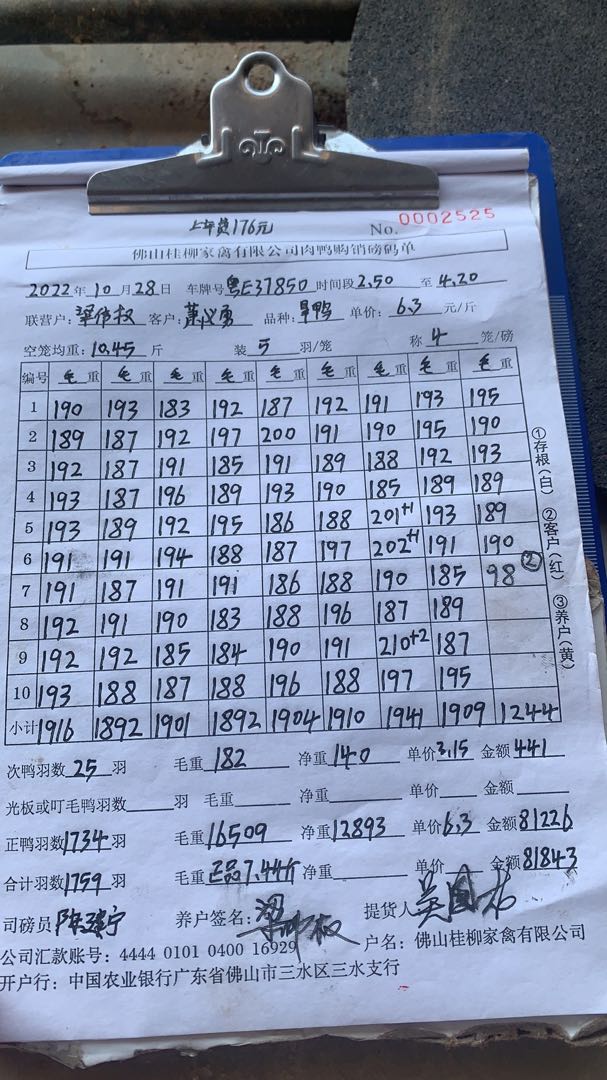 上车费176元
No. 0002525
佛山桂柳家禽有限公司肉鸭购销磅码单
2022年10月28日 车牌号粤E37850时间段2.50至4.20
联营户: 梁伟权 客户: 萧义勇 品种: 旱鸭 单价: 6.3元/斤
空笼均重: 10.45斤 装5羽/笼 称4笼/磅
编号 毛重 毛重 毛重 毛重 毛重 毛重 毛重 毛重 毛重
1 190 193 183 192 187 192 191 193 195
2 189 187 192 197 200 191 190 195 190
3 192 187 191 185 191 189 188 192 193
4 193 187 196 189 193 190 185 189 189
5 193 189 192 195 186 188 201+1 193 189
6 191 191 194 188 187 197 202+1 191 190
7 191 187 191 191 186 188 190 185 98②
8 192 191 190 183 188 196 187 189
9 192 192 185 184 190 191 210+2 187
10 193 188 187 188 196 188 197 195
小计 1916 1892 1901 1892 1904 1910 1941 1909 1244
①存根(白) ②客户(红) ③养户(黄)
次鸭羽数25羽 毛重182 净重140 单价3.15 金额441
光板或叮毛鸭羽数 羽 毛重 净重 单价 金额
正鸭羽数1734羽 毛重16509 净重12893 单价6.3 金额81226
合计羽数1759羽 毛重正品7.44斤 净重 单价 金额81843
司磅员 养户签名: 提货人
公司汇款账号: 4444 0101 0400 16929 户名: 佛山桂柳家禽有限公司
开户行: 中国农业银行广东省佛山市三水区三水支行